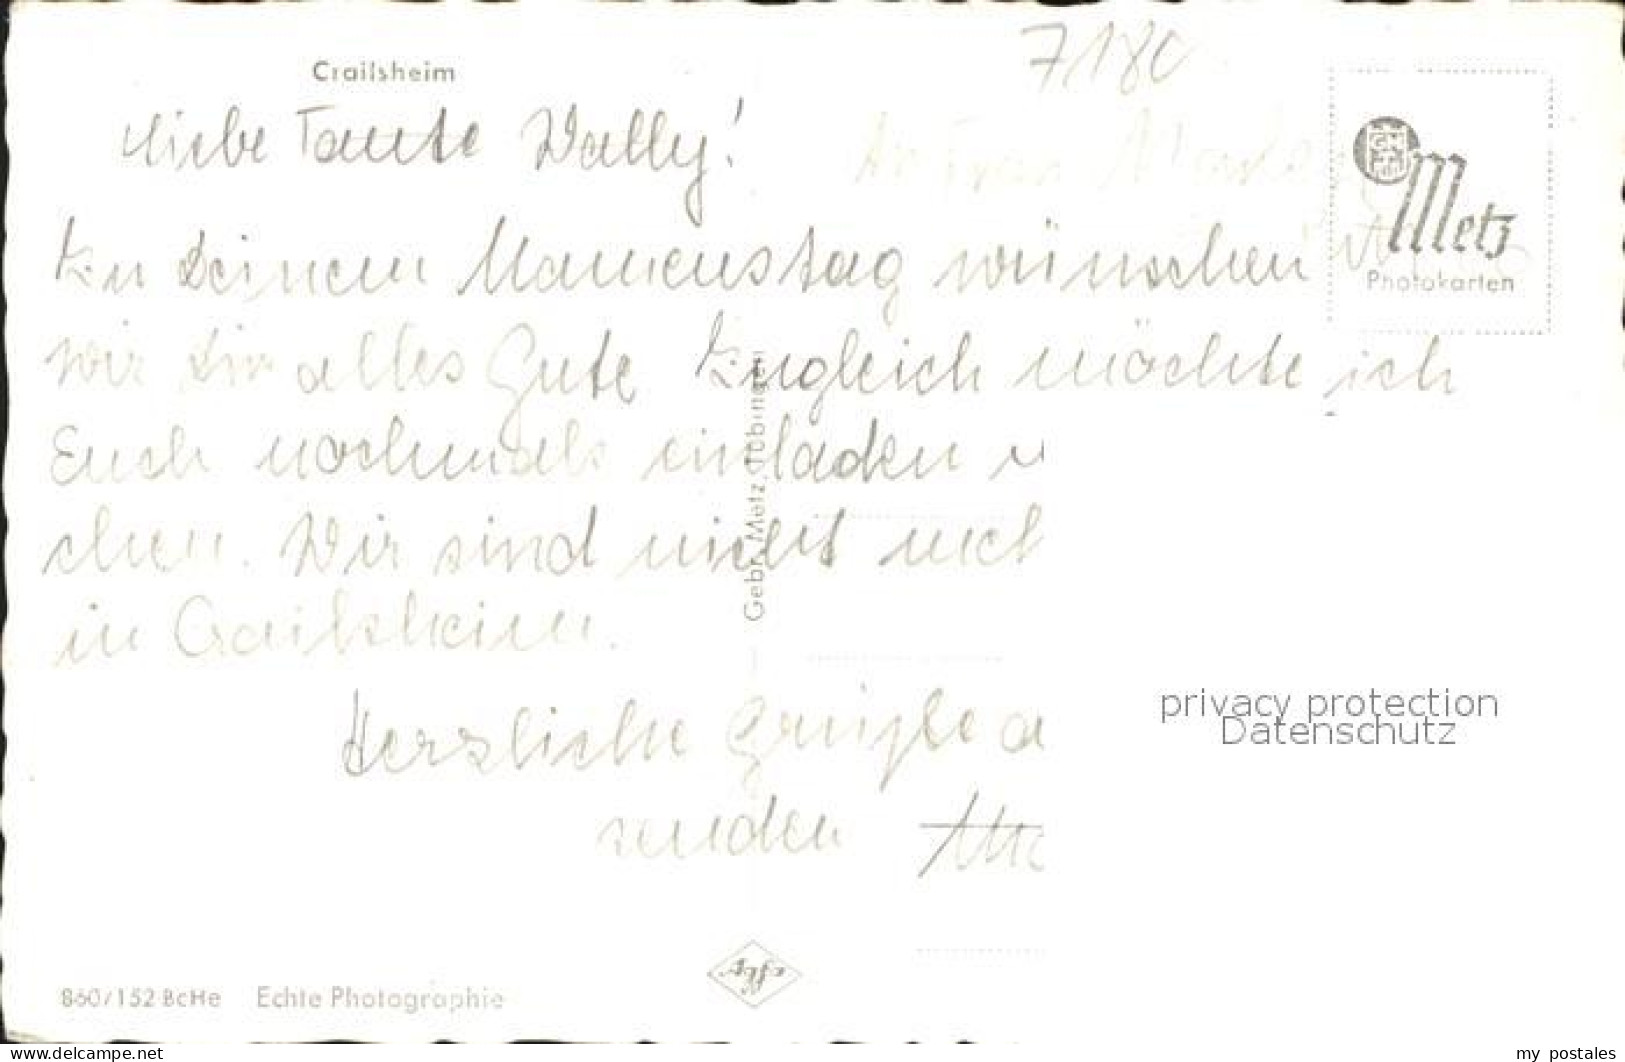 Crailsheim
7180
Liebe Tante Wally!
Zu Deinem Namenstag wünschen
wir Dir alles Gute Zugleich möchte ich
Euch nochmals einladen
chen. Wir sind nicht
in Crailsheim.
Herzliche Grüße
senden
Metz
Photokarten
Gebr. Metz, Tübingen
privacy protection
Datenschutz
Agfa
860/152 BcHe Echte Photographie
delcampe.net
my_postales